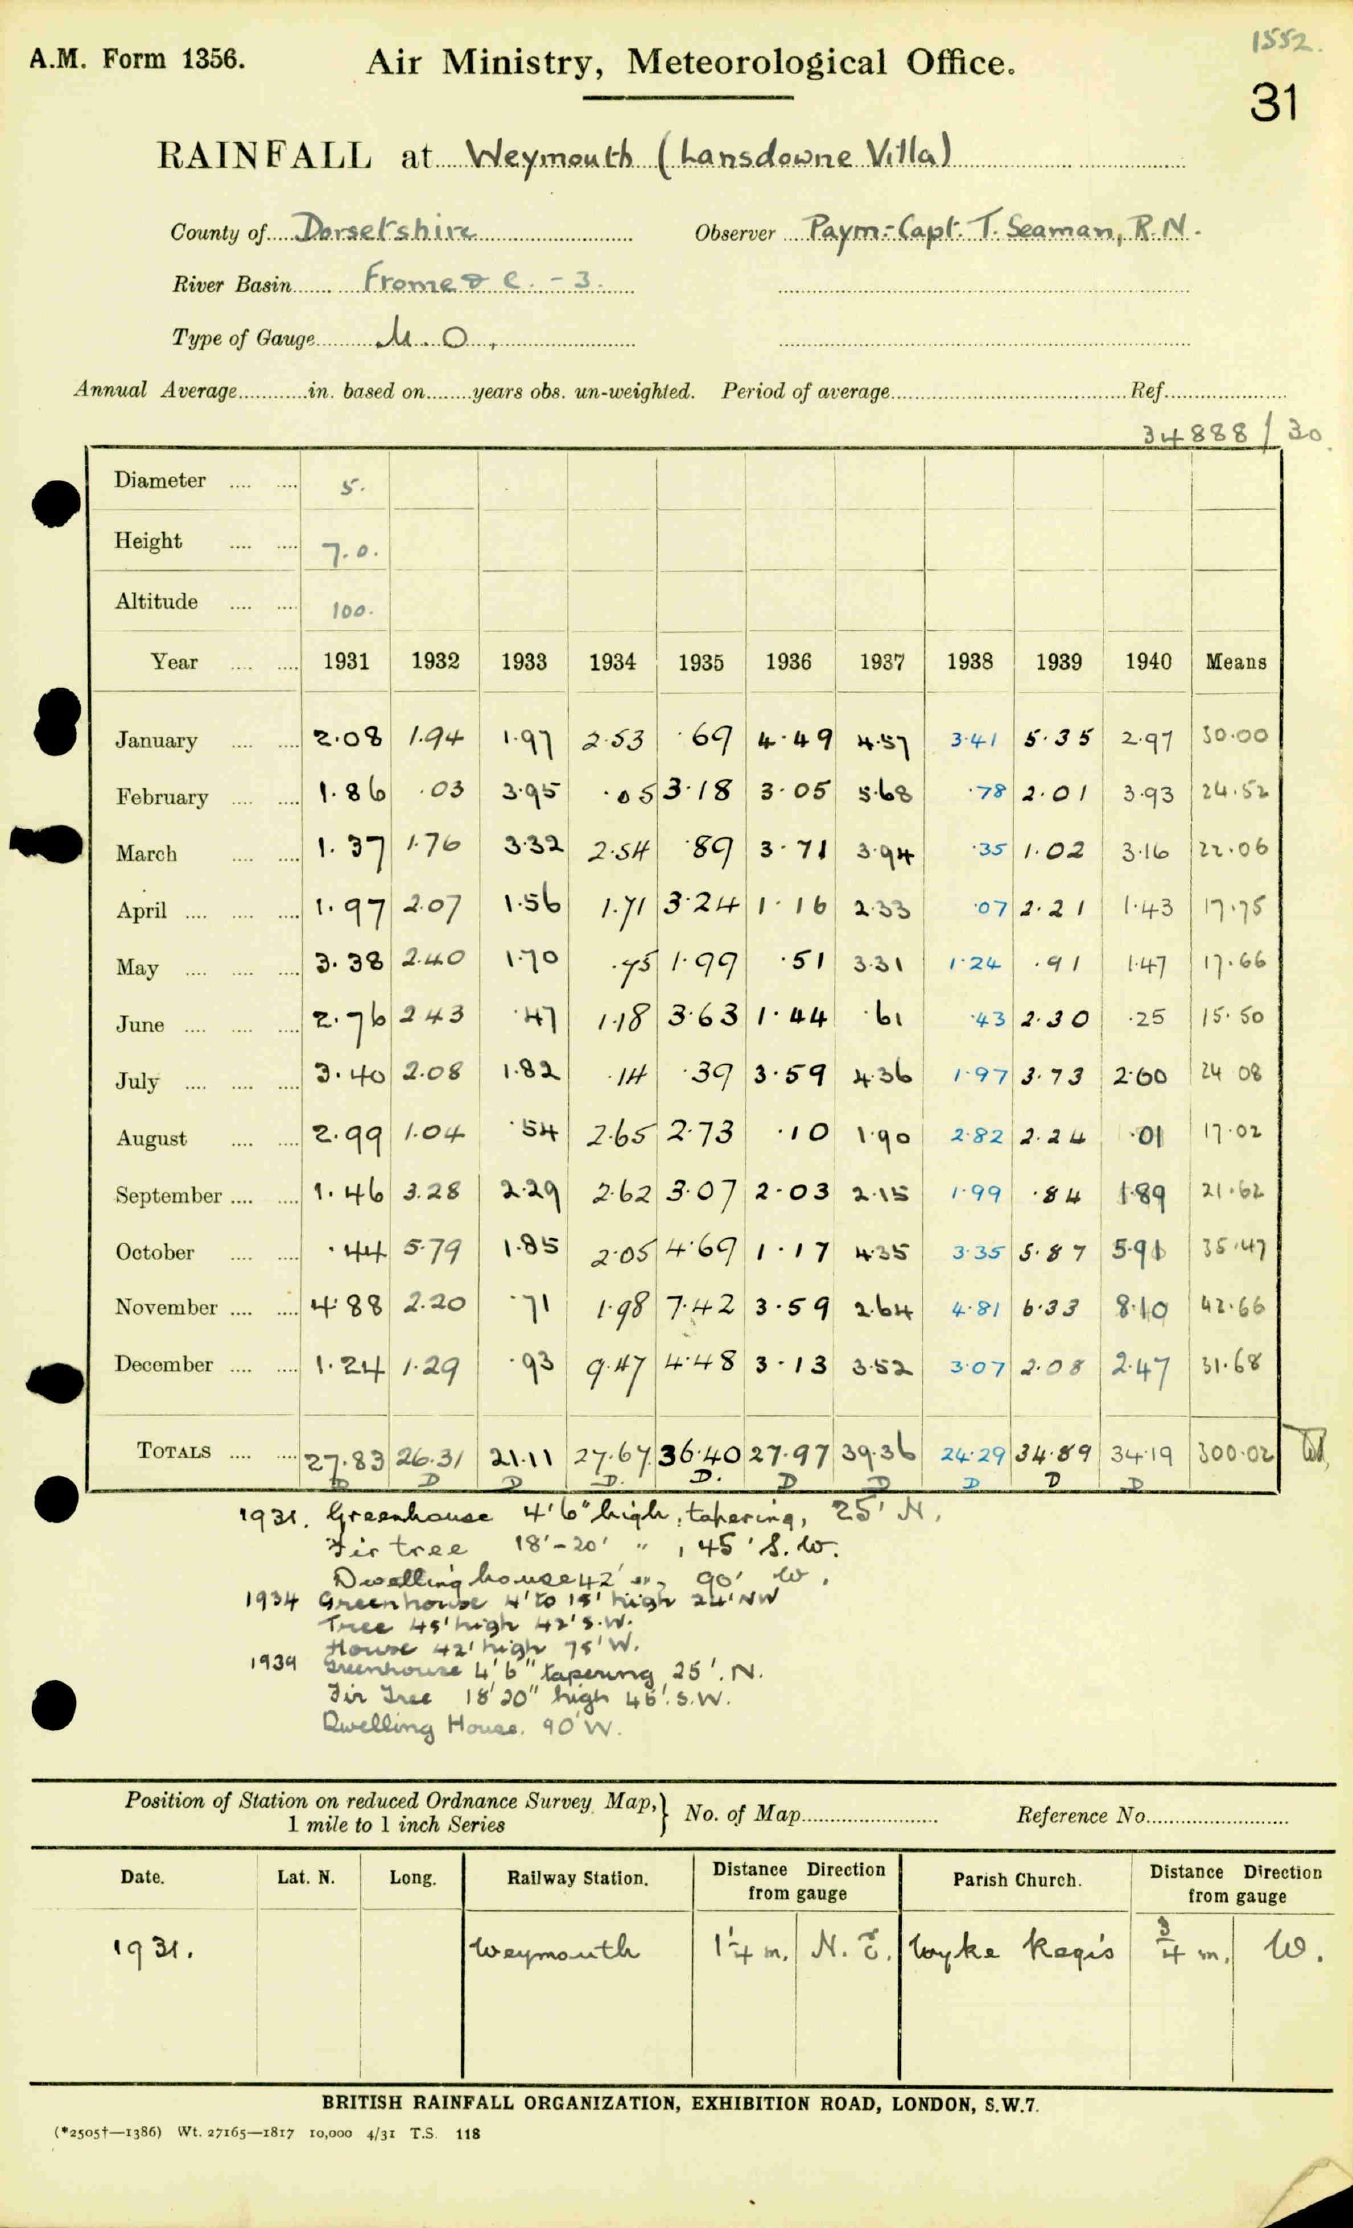 1552.
A.M. Form 1356. Air Ministry, Meteorological Office.
31
RAINFALL at Weymouth (Lansdowne Villa)
County of Dorsetshire Observer Paym:-Capt. T. Seaman, R.N.
River Basin Frome & C. - 3.
Type of Gauge M.O.
Annual Average in. based on years obs. un-weighted. Period of average Ref.
34888/30.
Diameter 5.
Height 7.0.
Altitude 100.
Year 1931 1932 1933 1934 1935 1936 1937 1938 1939 1940 Means
January 2.08 1.94 1.97 2.53 .69 4.49 4.57 3.41 5.35 2.97 30.00
February 1.86 .03 3.95 .05 3.18 3.05 5.68 .78 2.01 3.93 24.52
March 1.37 1.76 3.32 2.54 .89 3.71 3.94 .35 1.02 3.16 22.06
April 1.97 2.07 1.56 1.71 3.24 1.16 2.33 .07 2.21 1.43 17.75
May 3.38 2.40 1.70 .75 1.99 .51 3.31 1.24 .91 1.47 17.66
June 2.76 2.43 .47 1.18 3.63 1.44 .61 .43 2.30 .25 15.50
July 3.40 2.08 1.82 .14 .39 3.59 4.36 1.97 3.73 2.60 24.08
August 2.99 1.04 .54 2.65 2.73 .10 1.90 2.82 2.24 .01 17.02
September 1.46 3.28 2.29 2.62 3.07 2.03 2.15 1.99 .84 1.89 21.62
October .44 5.79 1.85 2.05 4.69 1.17 4.35 3.35 5.87 5.91 35.47
November 4.88 2.20 .71 1.98 7.42 3.59 2.64 4.81 6.33 8.10 42.66
December 1.24 1.29 .93 9.47 4.48 3.13 3.52 3.07 2.08 2.47 31.68
TOTALS 27.83 26.31 21.11 27.67 36.40 27.97 39.36 24.29 34.89 34.19 300.02
D D D D. D. D D D D D
1931. Greenhouse 4'6" high, tapering, 25' N.
Fir tree 18'-20' " , 45' S.W.
Dwelling house 42' " , 90' W.
1934 Greenhouse 4' to 15' high 24' NW
Tree 45' high 42' S.W.
House 42' high 75' W.
1939 Greenhouse 4'6" tapering 25'. N.
Fir Tree 18'20" high 45'. S.W.
Dwelling House. 90' W.
Position of Station on reduced Ordnance Survey Map, 1 mile to 1 inch Series } No. of Map Reference No.
Date. Lat. N. Long. Railway Station. Distance Direction from gauge Parish Church. Distance Direction from gauge
1931. Weymouth 1¼ m. N.E. Wyke Regis ¾ m. W.
BRITISH RAINFALL ORGANIZATION, EXHIBITION ROAD, LONDON, S.W.7.
(*2505†—1386) Wt. 27165—1817 10,000 4/31 T.S. 118